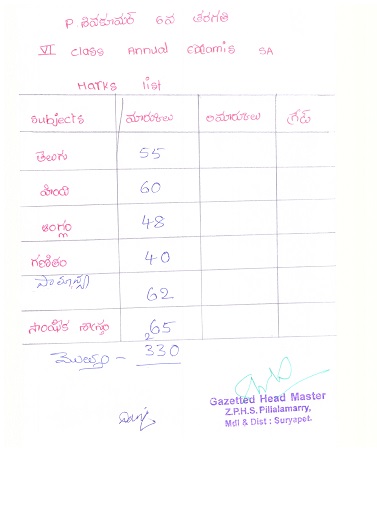 P శివకుమార్ 6వ తరగతి
VI class Annual exams SA
Marks list
Subjects మార్కులు గ్రేడ్
తెలుగు 55
హింది 60
ఆంగ్లం 48
గణితం 40
62
సాంఘిక శాస్త్రం 65
మొత్తం - 330
Gazetted Head Master
Z.P.H.S. Pillalamarry,
Mdl & Dist : Suryapet.